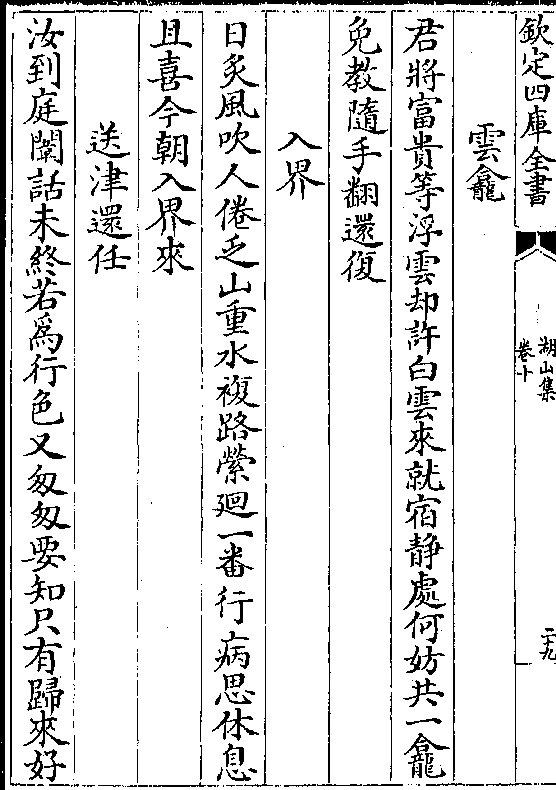 欽定四庫全書
湖山集
卷十
二十九
雲龕
君將富貴等浮雲却許白雲來就宿静處何妨共一龕
免教隨手翻還復
入界
日炙風吹人倦乏山重水複路縈廻一番行病思休息
且喜今朝入界來
送津還任
汝到庭闈話未終若為行色又匆匆要知只有歸來好